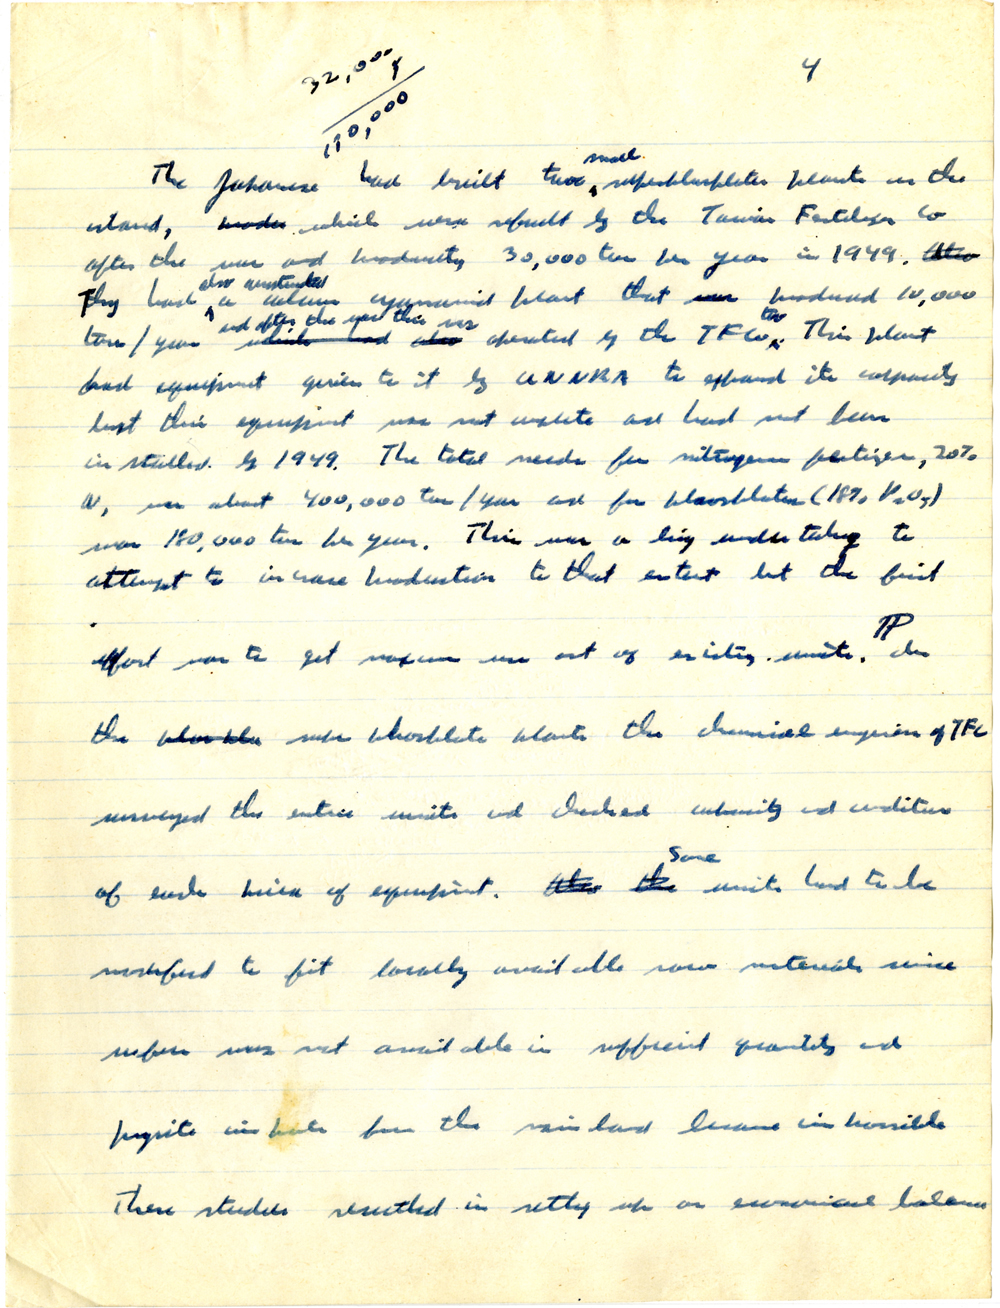 32,000
4
110,000
4
small
The Japanese had built two superphosphate plants on the
island, which were rebuilt by the Taiwan Fertilizer Co
after the war and producing 30,000 ton per year in 1949. Also
also constructed
They had a calcium cyanamid plant that was produced 10,000
and after the war this was
ton/year which had also operated by the TFCo, too. This plant
had equipment given to it by UNRRA to expand its capacity
but this equipment was not complete and had not been
installed by 1949. The total needs for nitrogen fertilizer, 20%
N, was about 400,000 ton/year and for phosphates (18% P2O5)
was 180,000 ton per year. This was a big undertaking to
attempt to increase production to that extent but the first
effort was to get maximum use out of existing units. ¶ In
the phospha super phosphate plants the chemical engineers of TFC
surveyed the entire units and checked capacity and condition
Some
of each piece of equipment. Also the units had to be
modified to fit locally available raw materials since
sulfur was not available in sufficient quantity and
pyrite imports from the mainland became impossible
These studies resulted in setting up an economical balance